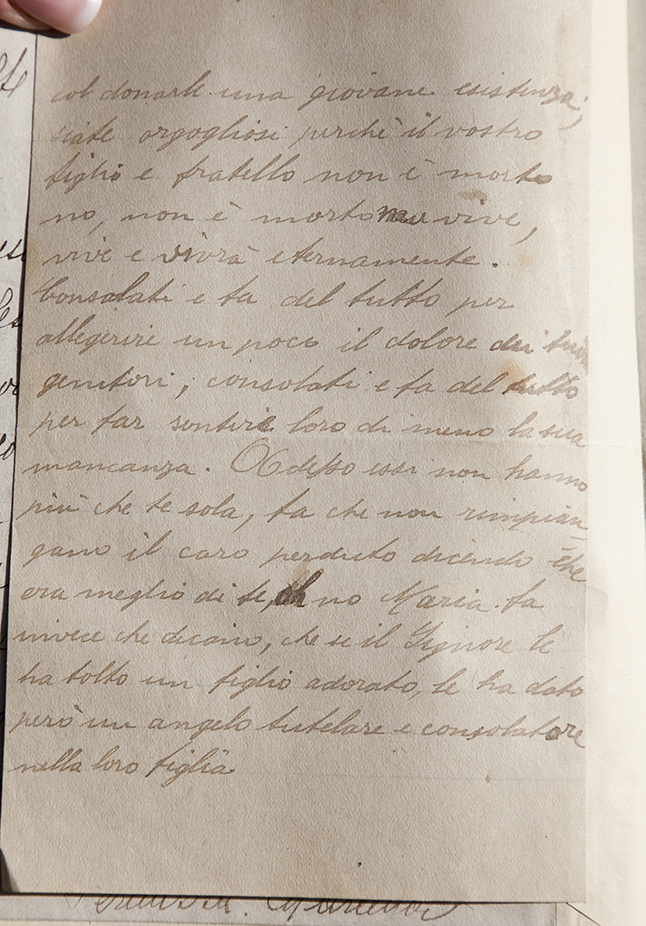 col donarle una giovane esistenza,
siate orgogliosi perchè il vostro
figlio e fratello non è morto
no, non è morto ma vive,
vive e vivrà eternamente.
Consolati e fa del tutto per
allegerire un poco il dolore dei tuoi
genitori; consolati e fa del tutto
per far sentire loro di meno la sua
mancanza. Adesso essi non hanno
più che te sola, fa che non rimpian-
gano il caro perduto dicendo che
era meglio di te, oh no Maria fa
invece che dicano, che se il Signore le
ha tolto un figlio adorato, le ha dato
però un angelo tutelare e consolatore
nella loro figlia